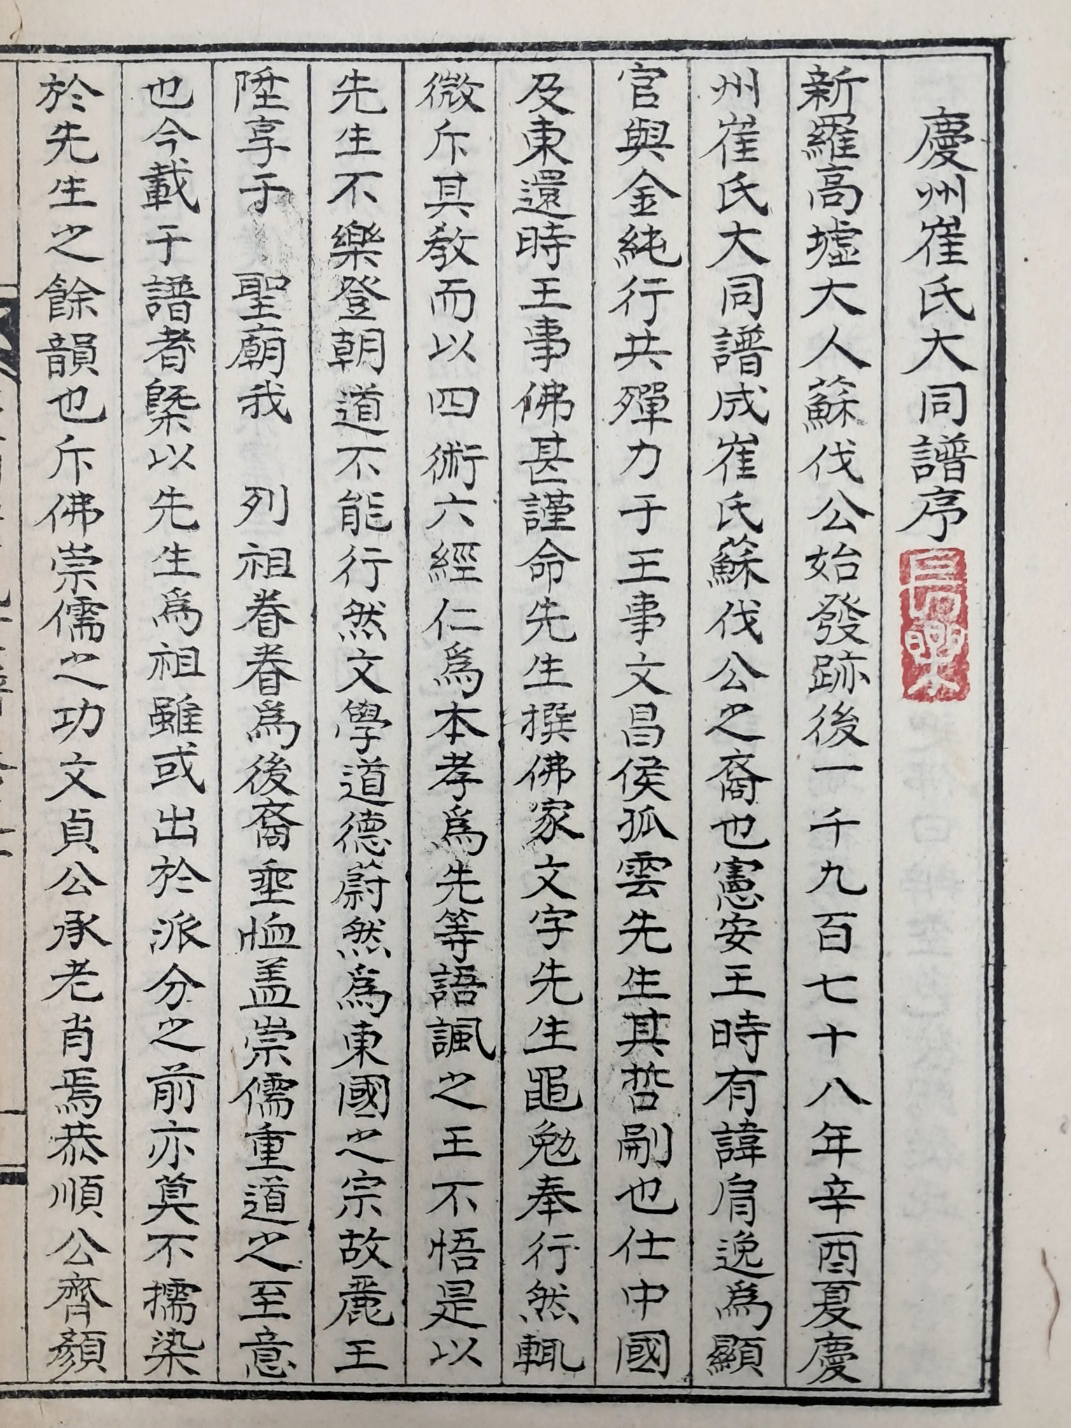 慶州崔氏大同譜序
新羅高墟大人蘇伐公始發跡後一千九百七十八年辛酉夏慶
州崔氏大同譜成崔氏蘇伐公之裔也憲安王時有諱肩逸爲顯
官與金純行共殫力于王事文昌侯孤雲先生其哲嗣也仕中國
及東還時王事佛甚謹命先生撰佛家文字先生黽勉奉行然輒
微斥其敎而以四術六經仁爲本孝爲先等語諷之王不悟是以
先生不樂登朝道不能行然文學道德蔚然爲東國之宗故麗王
陞享于 聖廟我 列祖眷眷爲後裔垂恤盖崇儒重道之至意
也今載于譜者槩以先生爲祖雖或出於派分之前亦莫不擩染
於先生之餘韻也斥佛崇儒之功文貞公承老肖焉恭順公齊顔